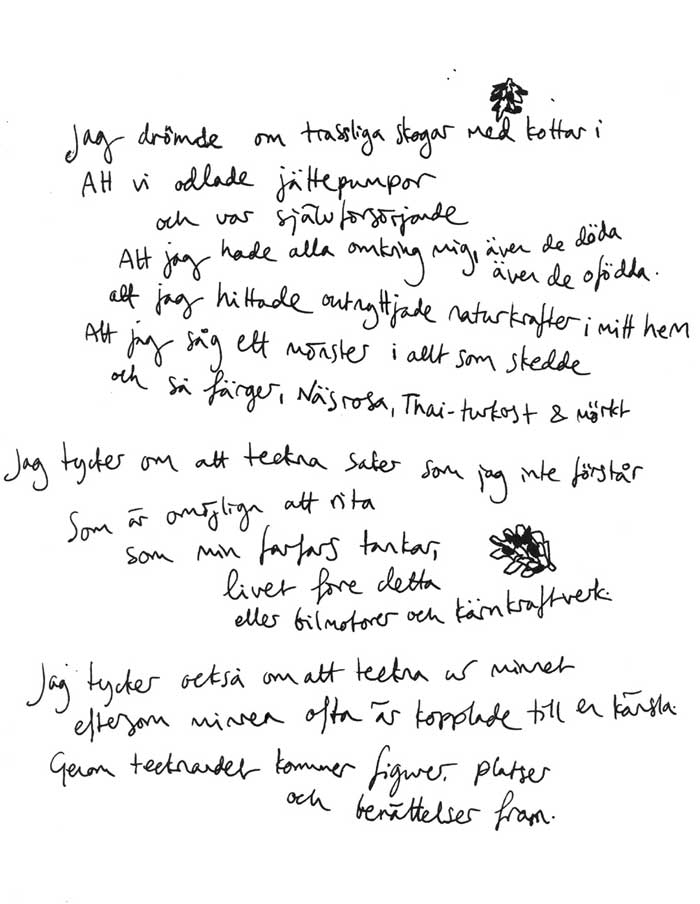 Jag drömde om trassliga skogar med kottar i
Att vi odlade jättepumpor
och var självförsörjande
Att jag hade alla omkring mig, även de döda
även de ofödda.
att jag hittade outnyttjade naturkrafter i mitt hem
Att jag såg ett mönster i allt som skedde
och så färger, Näsrosa, Thai-turkost & mörkt
Jag tycker om att teckna saker som jag inte förstår
Som är omöjliga att rita
som min farfars tankar,
livet före detta
eller bilmotorer och kärnkraftverk.
Jag tycker också om att teckna ur minnet
eftersom minnen ofta är kopplade till en känsla.
Genom tecknandet kommer figurer, platser
och berättelser fram.